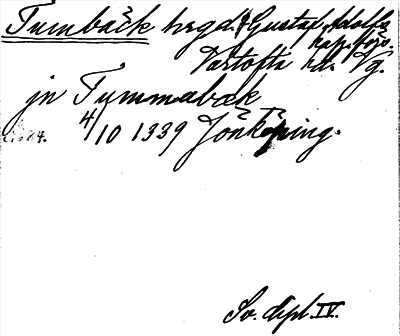 Tumbäck hrgd. i Gustaf Adolfs
kap. förs.
Vartofta hd. Vg.
jn Tummabæk
4/10 1339 Jönköping.
Sv. dipl. IV.